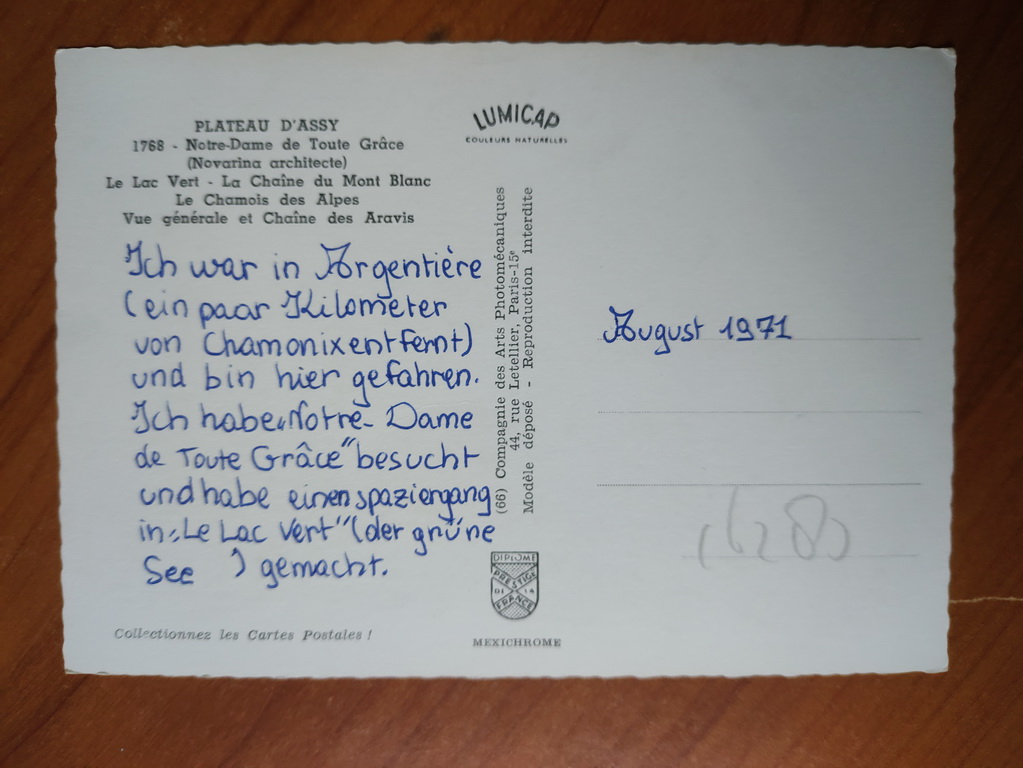 PLATEAU D'ASSY
1768 - Notre-Dame de Toute Grâce
(Novarina architecte)
Le Lac Vert - La Chaîne du Mont Blanc
Le Chamois des Alpes
Vue générale et Chaîne des Aravis
Ich war in Argentière
(ein paar Kilometer
von Chamonix entfernt)
und bin hier gefahren.
Ich habe „Notre-Dame
de Toute Grâce" besucht
und habe einen spaziergang
in „Le Lac Vert" (der grüne
See ) gemacht.
Collectionnez les Cartes Postales !
LUMICAP
COULEURS NATURELLES
(66) Compagnie des Arts Photomécaniques
44, rue Letellier, Paris-15e
Modèle déposé - Reproduction interdite
DIPLOME
PRESTIGE
DE LA
FRANCE
MEXICHROME
August 1971